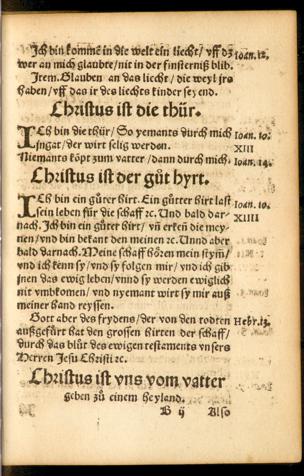 Ich bin kommē in die welt ein liecht/ vff dʒ Ioan. 12.
wer an mich glaubte/ nit in der finsterniß blib.
Item. Glauben an das liecht/ die weyl jrs
haben/ vff das ir des liechts kinder seyend.
Christus ist die thür.
ICh bin die thür/ So yemants durch mich Ioan. 10.
ingat/ der wirt selig werden. XIII
Niemants kōpt zum vatter/ dann durch mich. Ioan. 14.
Christus ist der gůt hyrt.
ICh bin ein gůter hirt. Ein gůtter hirt last Ioan. 10.
sein leben für die schaff ꝛc. Und bald dar- XIIII
nach. Ich bin ein gůter hirt/ vñ erken die mey-
nen/ vnd bin bekant den meinen ꝛc. Unnd aber
bald darnach. Meine schaff hören mein stym̄/
vnd ich kenn sy/ vnd sy folgen mir/ vnd ich gib
jnen das ewig leben/ vnnd sy werden ewiglich
nit vmbkomen/ vnd nyemant wirt sy mir auß
meiner hand reyssen.
Gott aber des frydens/ der von den rodten Hebr. 13.
außgefürt hat den grossen hirten der schaff/
durch das blůt des ewigen testaments vnsers
Herren Jesu Christi ꝛc.
Christus ist vns vom vatter
geben zů einem heyland.
B ij Also